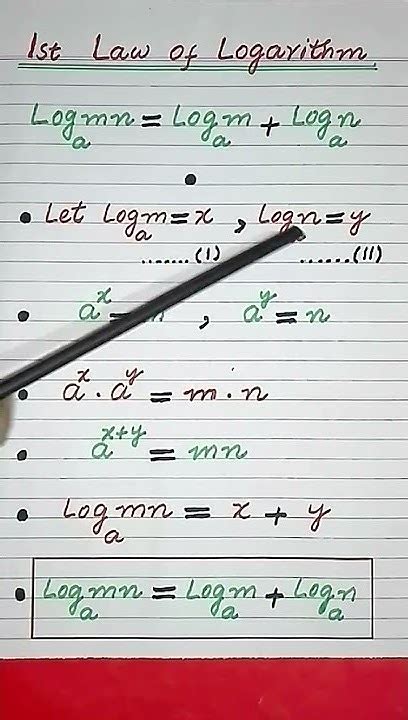 1st Law of Logarithm
Logₐmn = Logₐm + Logₐn
• Let Logₐm = x , Logn = y
.......(I) ......(II)
• aˣ = , aʸ = n
• aˣ . aʸ = m . n
• aˣ⁺ʸ = mn
• Logₐmn = x + y
• Logₐmn = Logₐm + Logₐn